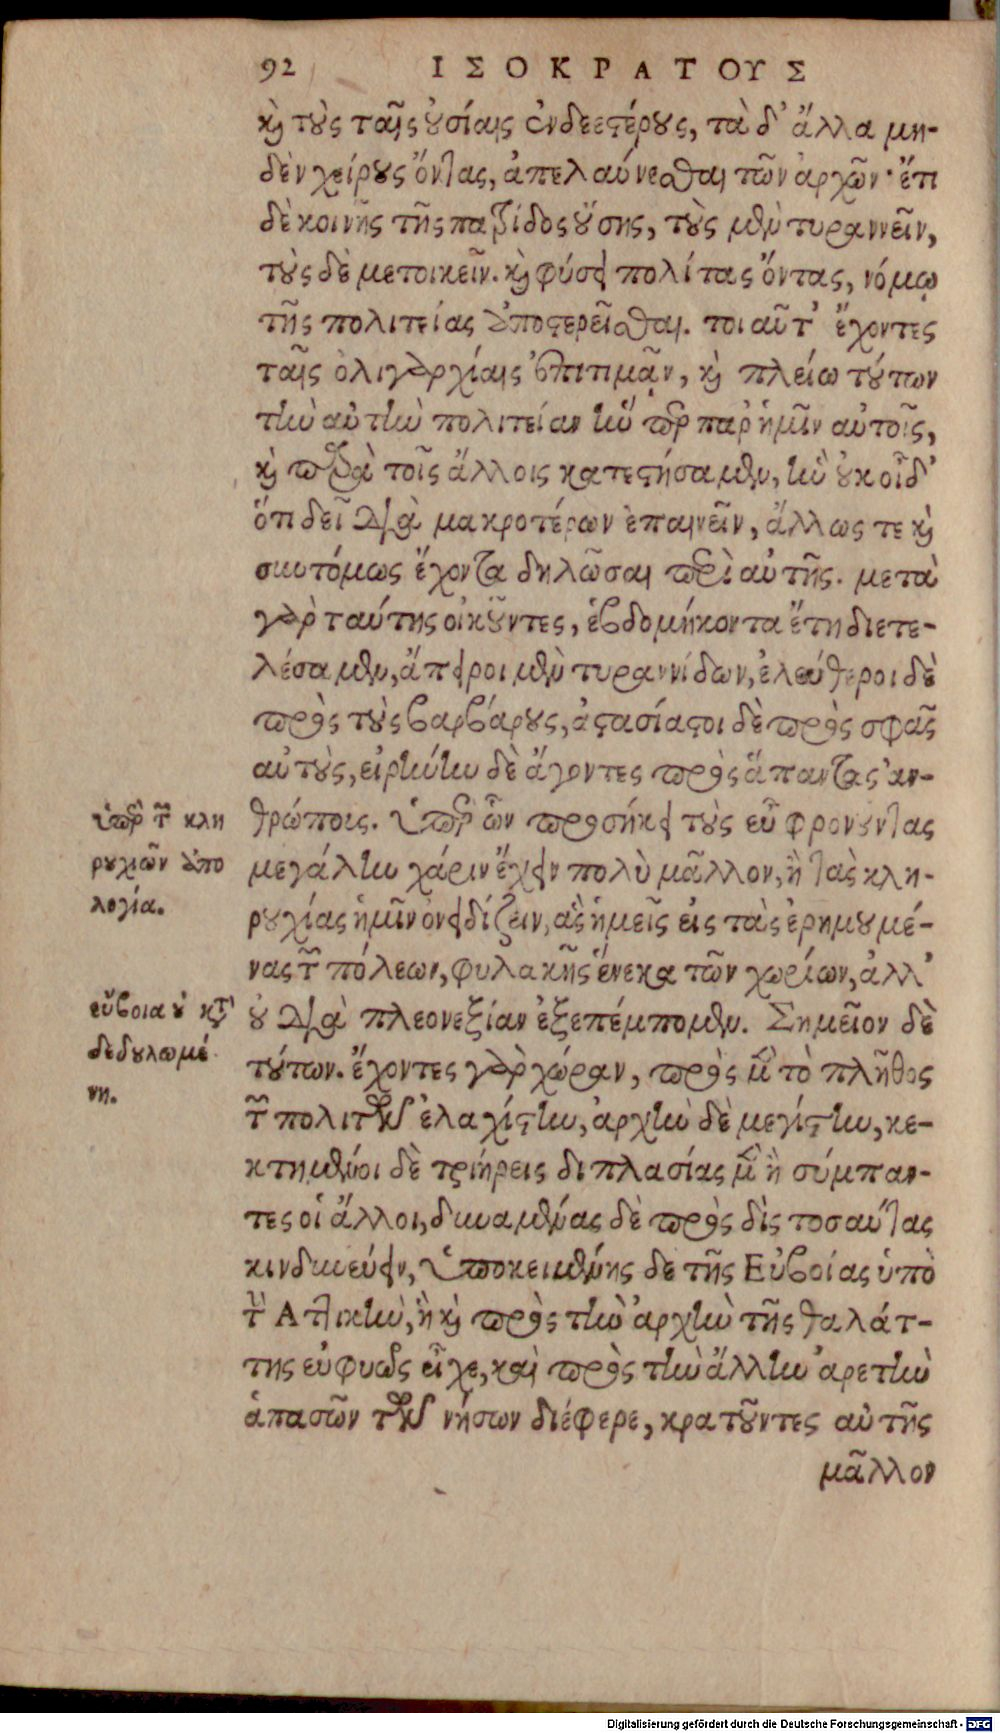 92 ΙΣΟΚΡΑΤΟΥΣ
καὶ τοὺς ταῖς οὐσίαις ἐνδεεστέρους, τὰ δ' ἄλλα μη-
δὲν χείρους ὄντας, ἀπελαύνεσθαι τῶν ἀρχῶν· ἔτι
δὲ κοινῆς τῆς πατρίδος οὔσης, τοὺς μὲν τυραννεῖν,
τοὺς δὲ μετοικεῖν. καὶ φύσει πολίτας ὄντας, νόμῳ
τῆς πολιτείας ἀποστερεῖσθαι. τοιαῦτ' ἔχοντες
ταῖς ὀλιγαρχίαις ἐπιτιμᾷν, καὶ πλείω τούτων
τὴν αὐτὴν πολιτείαν ἣν περ παρ' ἡμῖν αὐτοῖς,
καὶ παρὰ τοῖς ἄλλοις κατεστήσαμεν, ἣν οὐκ οἶδ'
ὅτι δεῖ διὰ μακροτέρων ἐπαινεῖν, ἄλλως τε καὶ
συντόμως ἔχοντα δηλῶσαι περὶ αὐτῆς. μετὰ
γὰρ ταύτης οἰκοῦντες, ἑβδομήκοντα ἔτη διετε-
λέσαμεν, ἄπειροι μὲν τυραννίδων, ἐλεύθεροι δὲ
πρὸς τοὺς βαρβάρους, ἀστασίαστοι δὲ πρὸς σφᾶς
αὐτοὺς, εἰρήνην δὲ ἄγοντες πρὸς ἅπαντας ἀν-
θρώποις. Ὑπὲρ ὧν προσήκει τοὺς εὖ φρονοῦντας
μεγάλην χάριν ἔχειν πολὺ μᾶλλον, ἢ τὰς κλη-
ρουχίας ἡμῖν ὀνειδίζειν, ἃς ἡμεῖς εἰς τὰς ἐρημουμέ-
νας τῶν πόλεων, φυλακῆς ἕνεκα τῶν χωρίων, ἀλλ'
οὐ διὰ πλεονεξίαν ἐξεπέμπομεν. Σημεῖον δὲ
τούτων. ἔχοντες γὰρ χώραν, πρὸς μὲν τὸ πλῆθος
τῶν πολιτῶν ἐλαχίστην, ἀρχὴν δὲ μεγίστην, κε-
κτημένοι δὲ τριήρεις διπλασίας μὲν ἢ σύμπαν-
τες οἱ ἄλλοι, δυναμένας δὲ πρὸς δὶς τοσαύτας
κινδυνεύειν, ὑποκειμένης δὲ τῆς Εὐβοίας ὑπὸ
τὴν Ἀττικὴν, ἣ καὶ πρὸς τὴν ἀρχὴν τῆς θαλάτ-
της εὐφυῶς εἶχε, καὶ πρὸς τὴν ἄλλην ἀρετὴν
ἁπασῶν τῶν νήσων διέφερε, κρατοῦντες αὐτῆς
μᾶλλον
ὑπὲρ τῶν κλη
ρουχιῶν ἀπο
λογία.
εὔβοια οὐ κατα
δεδουλωμέ
νη.
Digitalisierung gefördert durch die Deutsche Forschungsgemeinschaft - DFG